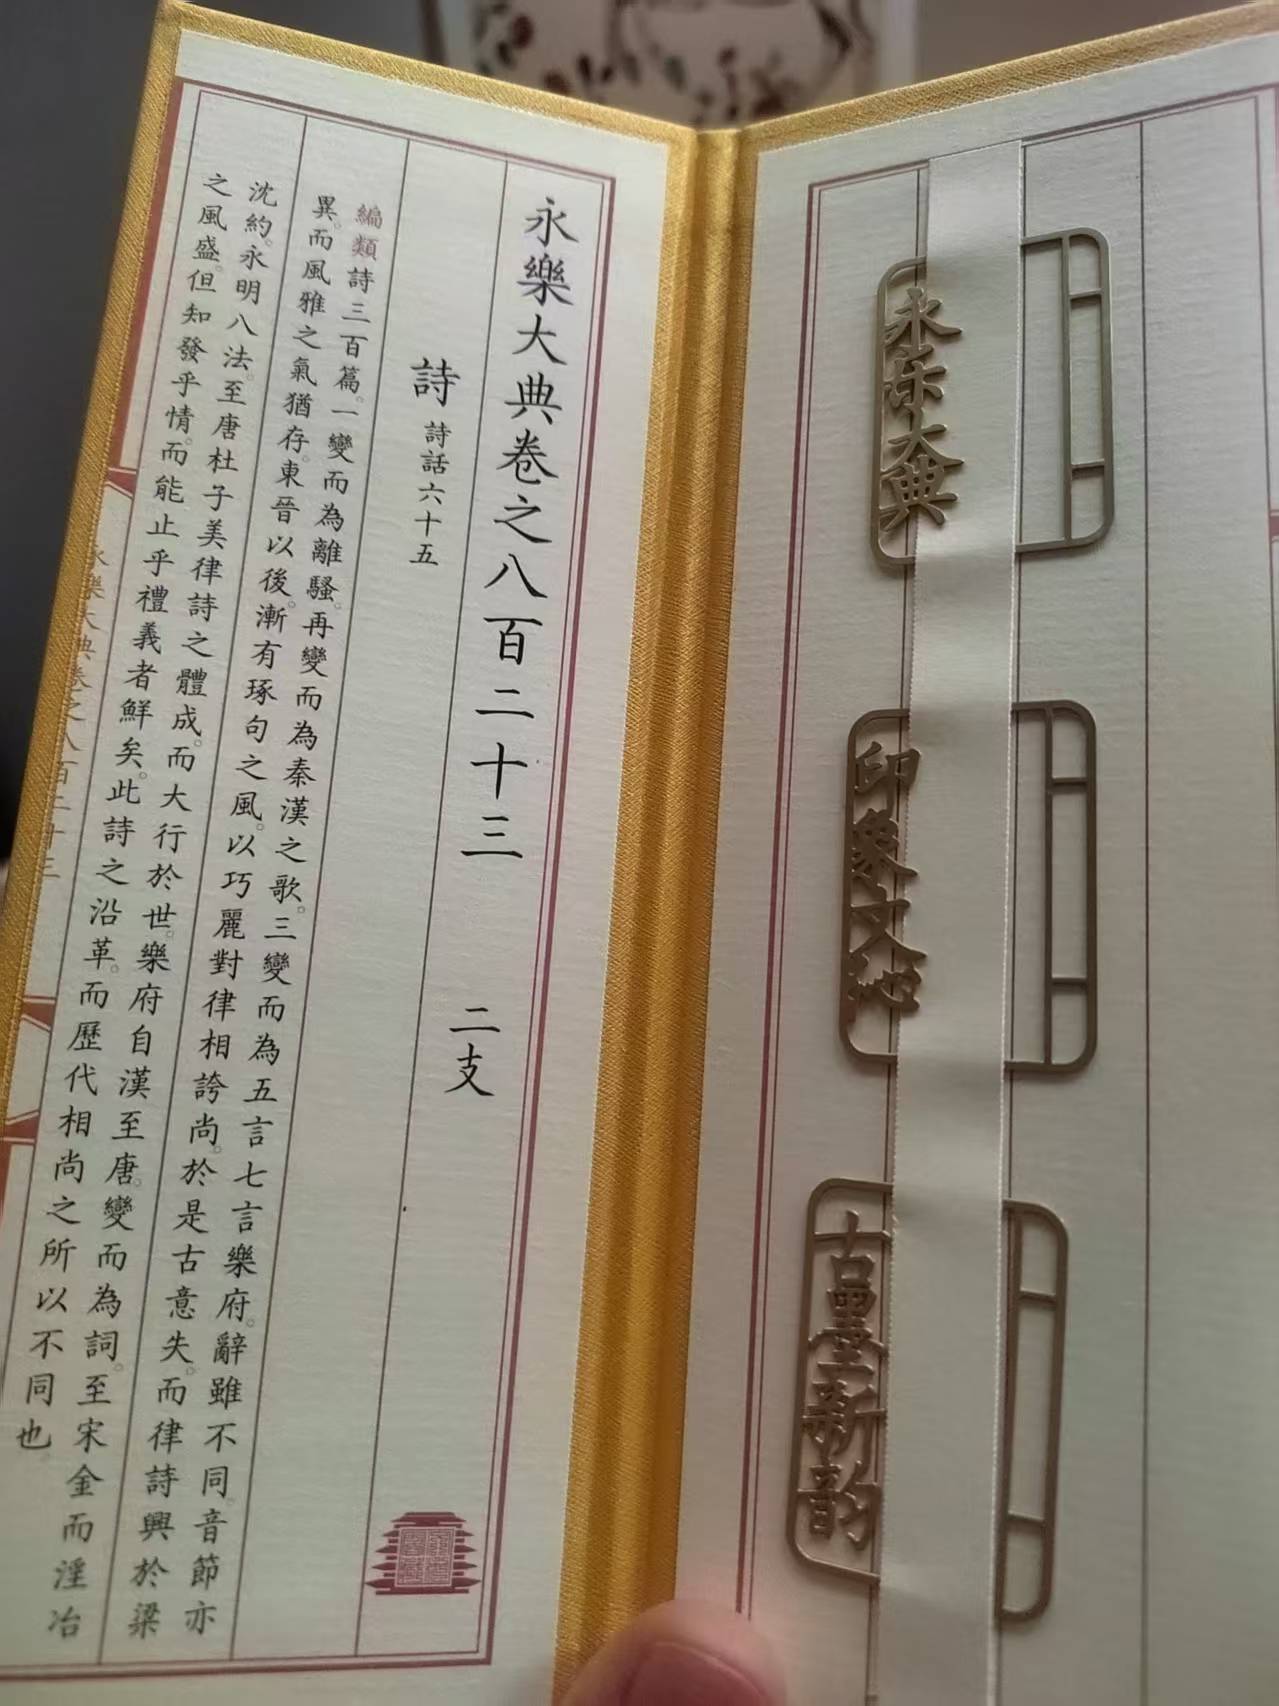 永樂大典卷之八百二十三 二支
詩 詩話六十五
編類詩三百篇。一變而為離騷。再變而為秦漢之歌。三變而為五言七言樂府。辭雖不同。音節亦
異。而風雅之氣猶存。東晉以後。漸有琢句之風。以巧麗對律相誇尚。於是古意失。而律詩興於梁
沈約。永明八法。至唐杜子美律詩之體成。而大行於世。樂府自漢至唐。變而為詞。至宋金而淫冶
之風盛。但知發乎情。而能止乎禮義者鮮矣。此詩之沿革。而歷代相尚之所以不同也。
永樂大典卷之八百二十三
永乐大典
印象文
古墨新韵